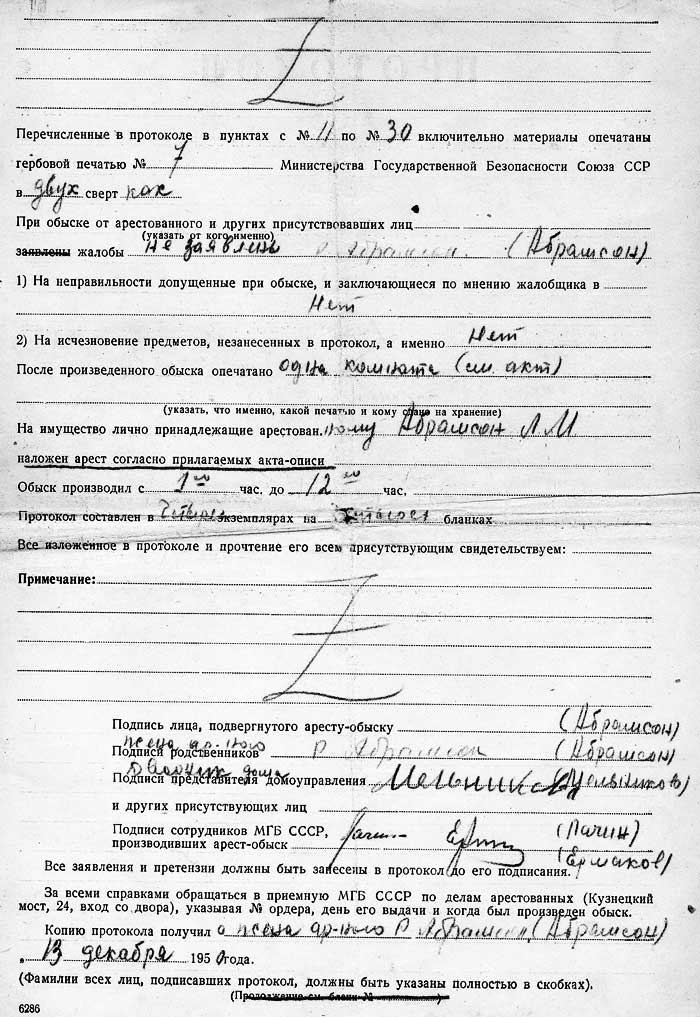 Перечисленные в протоколе в пунктах с № 11 по № 30 включительно материалы опечатаны
гербовой печатью № 7 Министерства Государственной Безопасности Союза ССР
в двух сверт ках
При обыске от арестованного и других присутствовавших лиц
(указать от кого именно)
заявлены жалобы не заявлены Р Абрамсон. (Абрамсон)
1) На неправильности допущенные при обыске, и заключающиеся по мнению жалобщика в
Нет
2) На исчезновение предметов, незанесенных в протокол, а именно Нет
После произведенного обыска опечатано одна комната (см. акт)
(указать, что именно, какой печатью и кому сдано на хранение)
На имущество лично принадлежащие арестован. ному Абрамсон Л М
наложен арест согласно прилагаемых акта-описи
Обыск производил с 1 час. до 12 час,
Протокол составлен в экземплярах на бланках
Все изложенное в протоколе и прочтение его всем присутствующим свидетельствуем:
Примечание:
Подпись лица, подвергнутого аресту-обыску (Абрамсон)
жена ар-ного
Подписи родственников Р Абрамсон (Абрамсон)
Дворник дома
Подписи представителя домоуправления Мельников (Мельников)
и других присутствующих лиц
Подписи сотрудников МГБ СССР, (Лачин)
производивших арест-обыск (Ермаков)
Все заявления и претензии должны быть занесены в протокол до его подписания.
За всеми справками обращаться в приемную МГБ СССР по делам арестованных (Кузнецкий
мост, 24, вход со двора), указывая № ордера, день его выдачи и когда был произведен обыск.
Копию протокола получил а жена ар-ного Р Абрамсон (Абрамсон)
13 декабря 1950 года.
(Фамилии всех лиц, подписавших протокол, должны быть указаны полностью в скобках).
6286